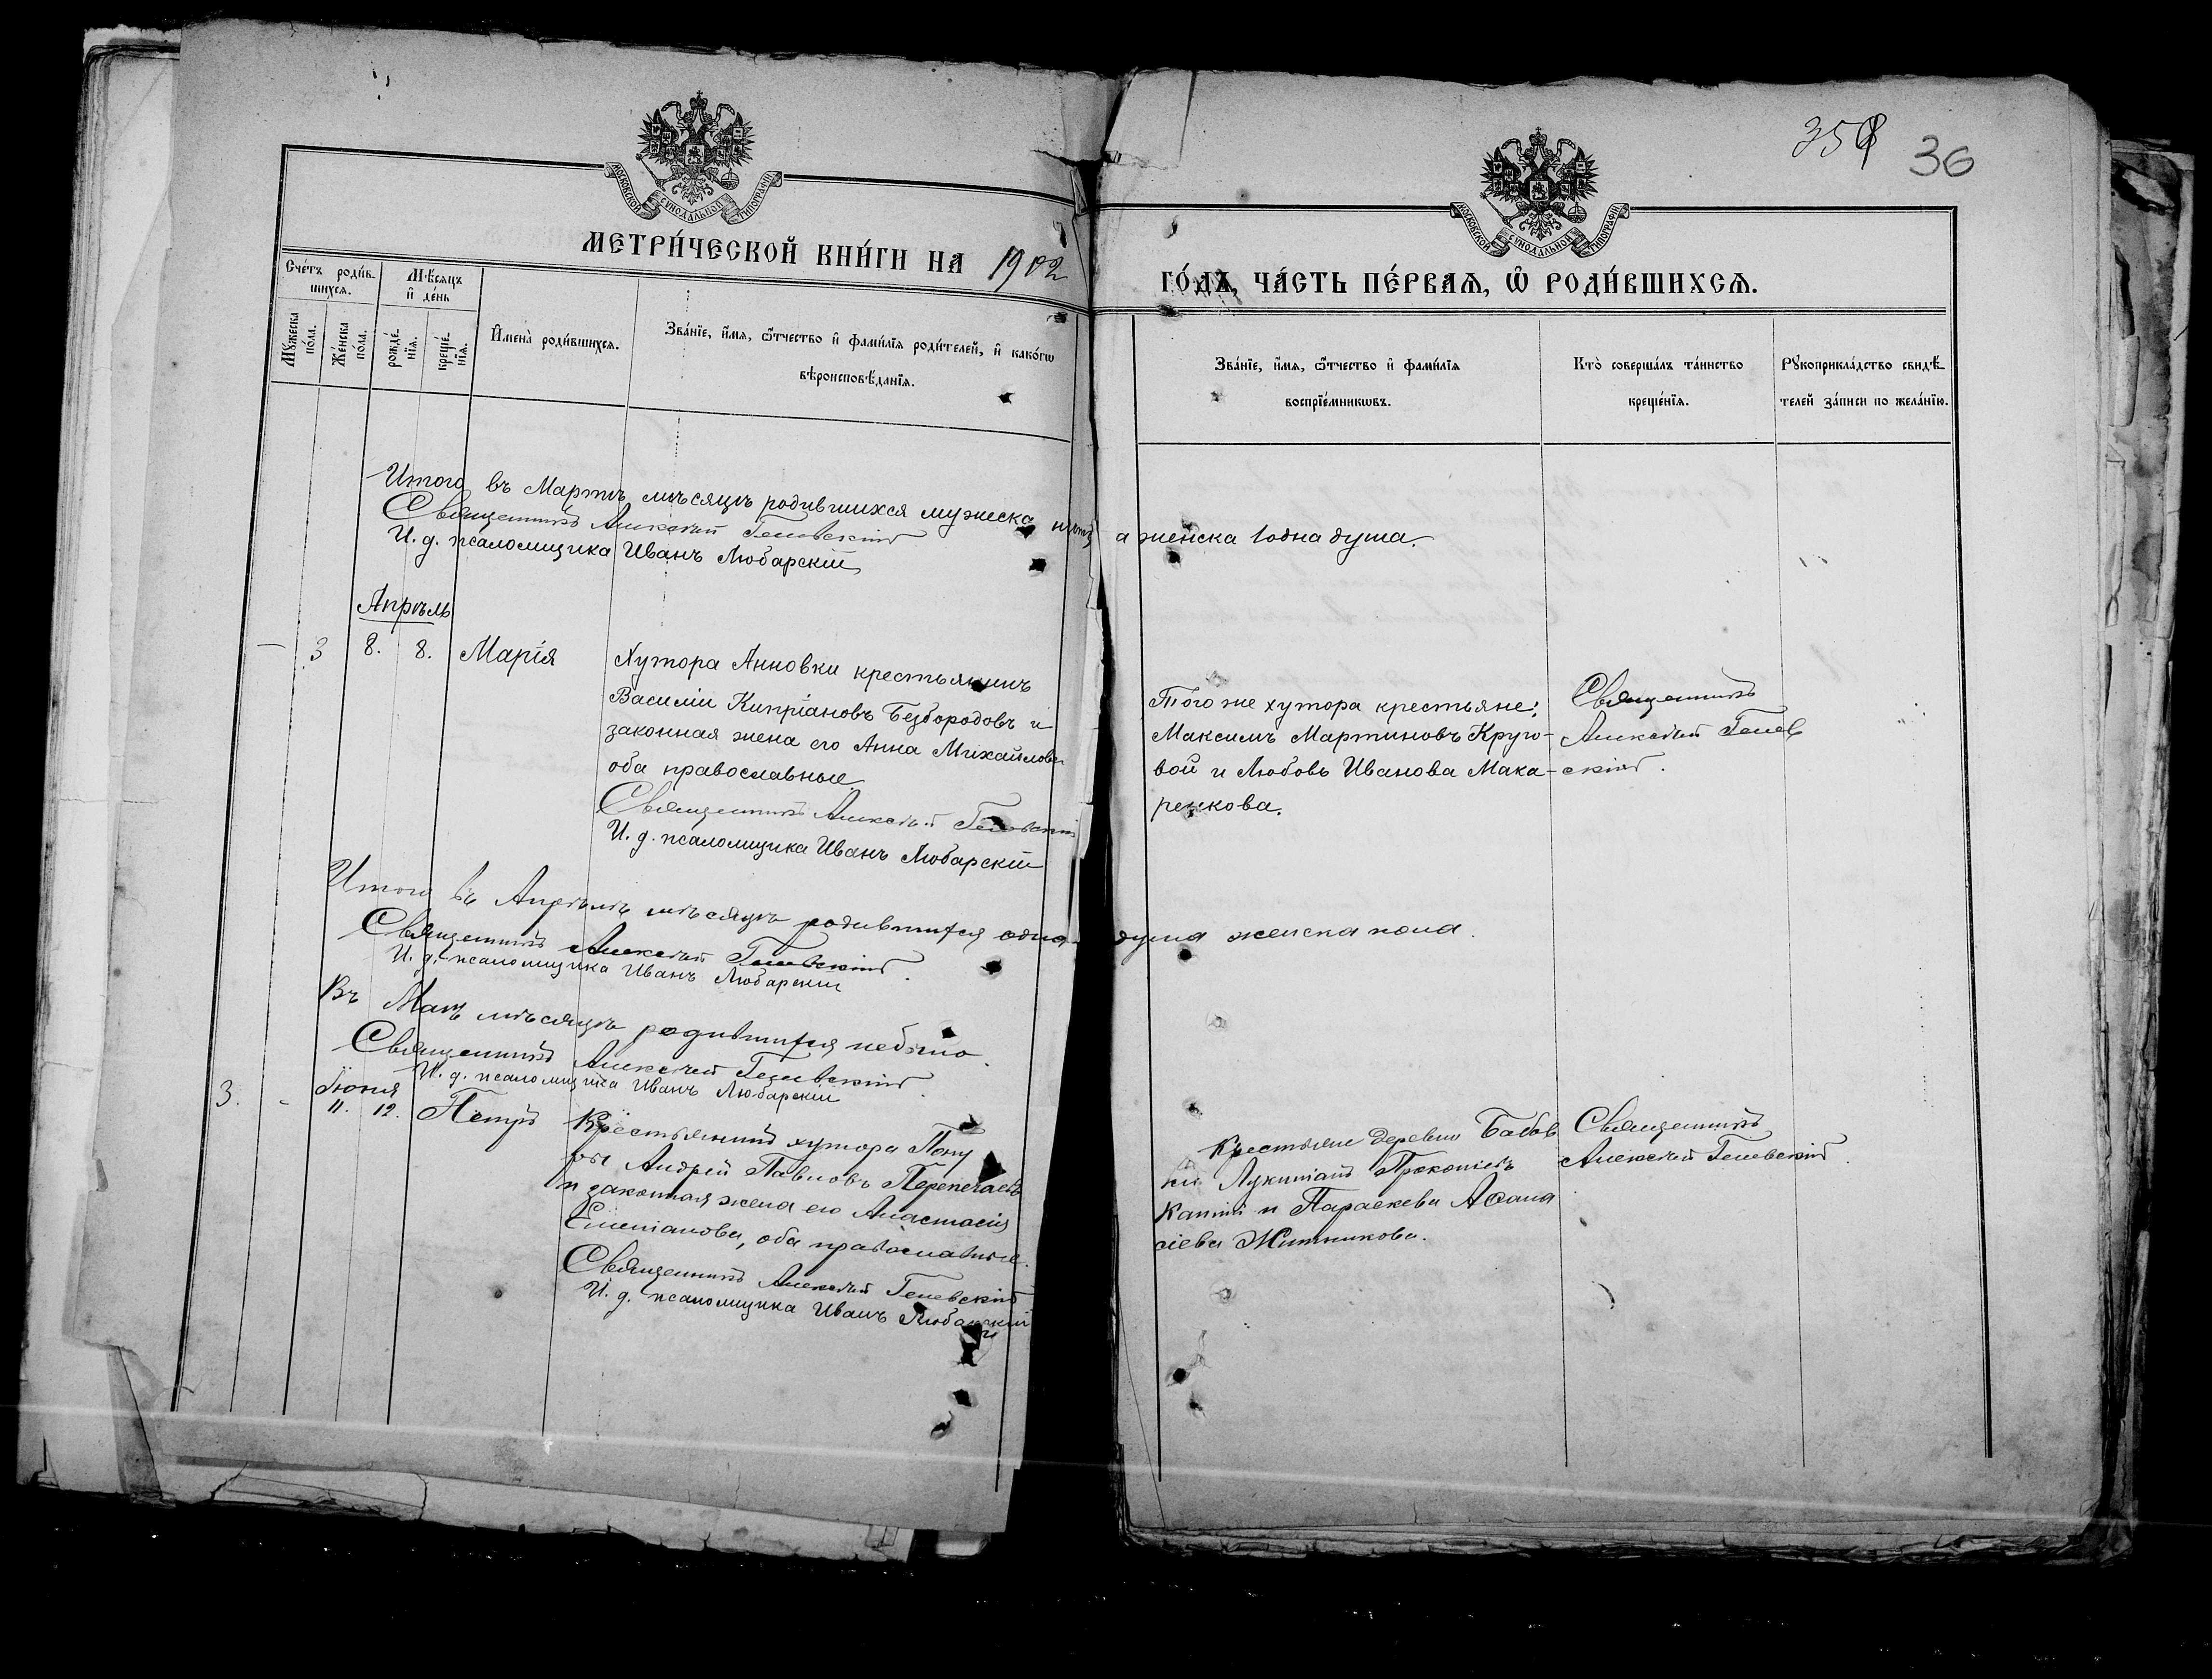 358 36
МОСКОВСКОЙ СѴНОДАЛЬНОЙ ТИПОГРАФІИ
МОСКОВСКОЙ СѴНОДАЛЬНОЙ ТИПОГРАФІИ
МЕТРИ́ЧЕСКОЙ КНИ́ГИ НА 1902
ГО́ДЪ, ЧА́СТЬ ПЕ́РВАЯ, Ѡ҆ РОДИ́ВШИХСЯ.
Сче́тъ роди́в-
шихся.
Му́жеска
по́ла.
Же́нска
по́ла.
Мѣ́сяцъ
и҆ де́нь
рожде́-
нїя.
креще́-
нїя.
И҆мена̀ роди́вшихся.
Зва́нїе, и҆́мя, ѻ҆́тчество и҆ фами́лїя роди́телей, и҆ како́гѡ
вѣроисповѣ́данїя.
Зва́нїе, и҆́мя, ѻ҆́тчество и҆ фами́лїя
воспрїе́мникѡвъ.
Кто̀ соверша́лъ та́инство
креще́нїя.
Рꙋкоприкла́дство свидѣ́-
телей за́писи по жела́нїю.
Итого въ Мартѣ мѣсяцѣ родившихся мужеска
а женска 1 одна душа.
Священникъ Алексѣй
И. д. псаломщика Иванъ Любарскій
Апрѣль
— 3 8. 8. Марія
Хутора Анновки крестьянинъ
Василій Кипріановъ Безбородовъ и
законная жена его Анна Михайлова
оба православные.
Священникъ Алексѣй
И. д. псаломщика Иванъ Любарскій
Того же хутора крестьяне:
Максимъ Мартиновъ Круго-
вой и Любовь Иванова Мака-
ренкова.
Священникъ
Алексѣй
скій.
Итого въ Апрѣлѣ мѣсяцѣ родившихся одна душа женска пола.
Священникъ Алексѣй
И. д. псаломщика Иванъ Любарскій
Въ Маѣ мѣсяцѣ родившихся небыло.
Священникъ Алексѣй
И. д. псаломщика Иванъ Любарскій
Іюня
3. - 11. 12. Петръ
Крестьянинъ хутора Пону
ры Андрей Павловъ
и законная жена его Анастасія
оба православные.
Священникъ Алексѣй
И. д. псаломщика Иванъ Любарскій
Крестьяне деревни Бабов
ки Лукиіанъ Прокопіевъ
и Параскева Аѳана
сіева Житникова.
Священникъ
Алексѣй